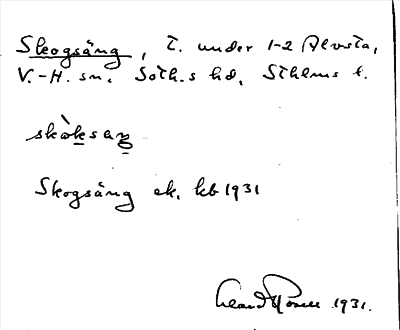 Skogsäng, t. under 1-2 Alvsta,
V.-H. sn. Soth.s hd, Sthlms l.
skòksaŋ
Skogsäng ek. kb 1931
1931.